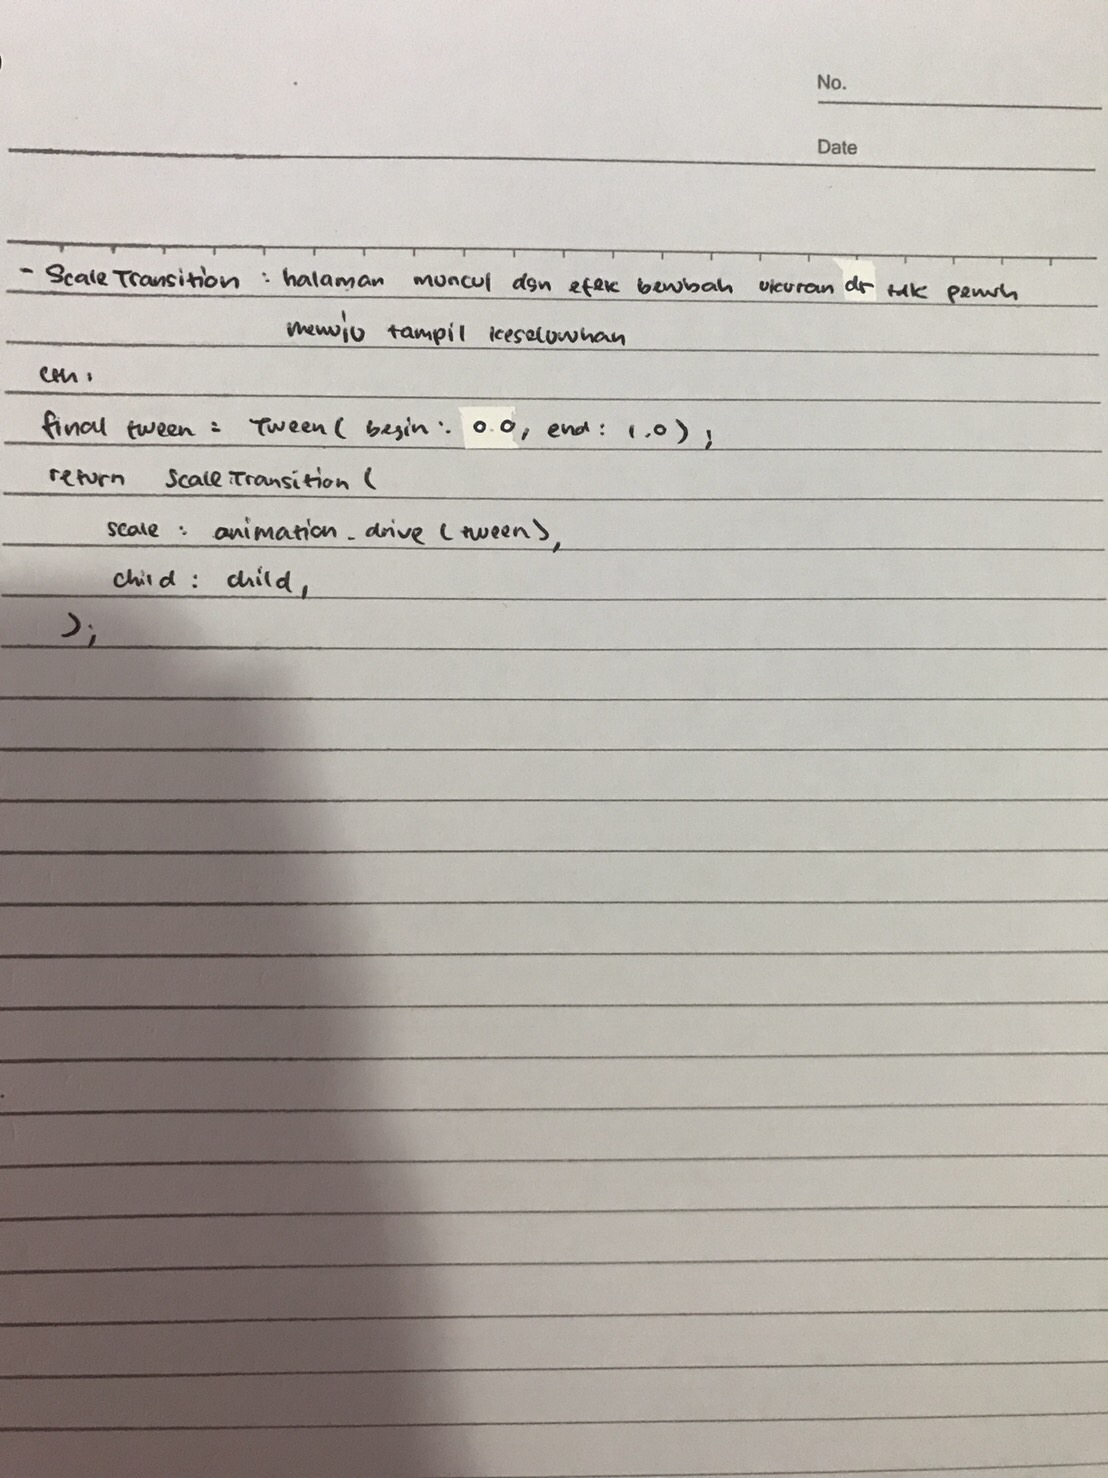 No.
Date
- ScaleTransition : halaman muncul dgn efek berubah ukuran dr tdk penuh
menuju tampil keseluruhan
cth :
final tween = Tween( begin : 0.0, end : 1.0 ) ;
return ScaleTransition (
scale : animation.drive (tween),
child : child,
);